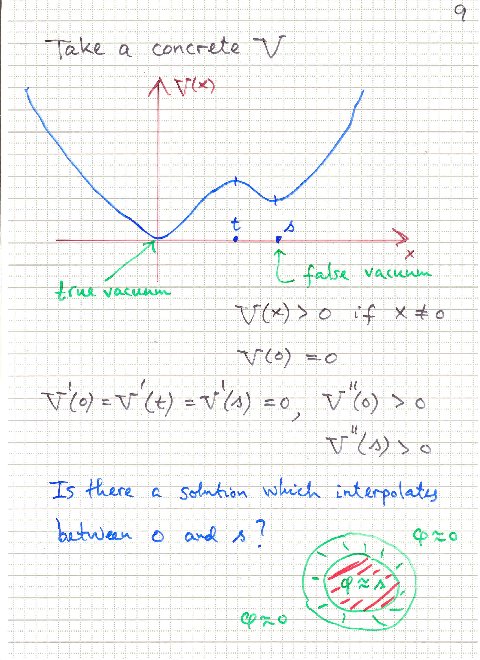 9
Take a concrete V
V(x)
t s
x
true vacuum
false vacuum
V(x) > 0 if x ≠ 0
V(0) = 0
V'(0) = V'(t) = V'(s) = 0, V''(0) > 0
V''(s) > 0
Is there a solution which interpolates
between 0 and s?
φ ≈ 0
φ ≈ s
φ ≈ 0